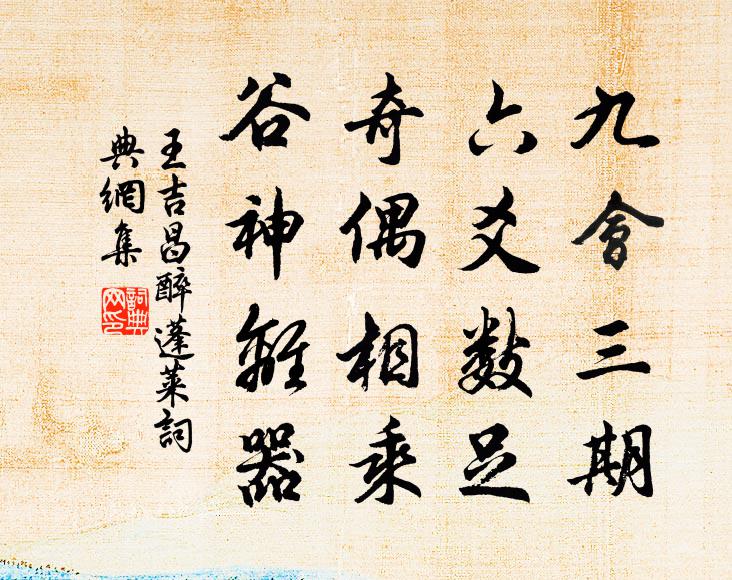 九會三期
六爻數足
奇偶相乘
谷神離器
王吉昌醉蓬萊詞
典網集
詞典網印